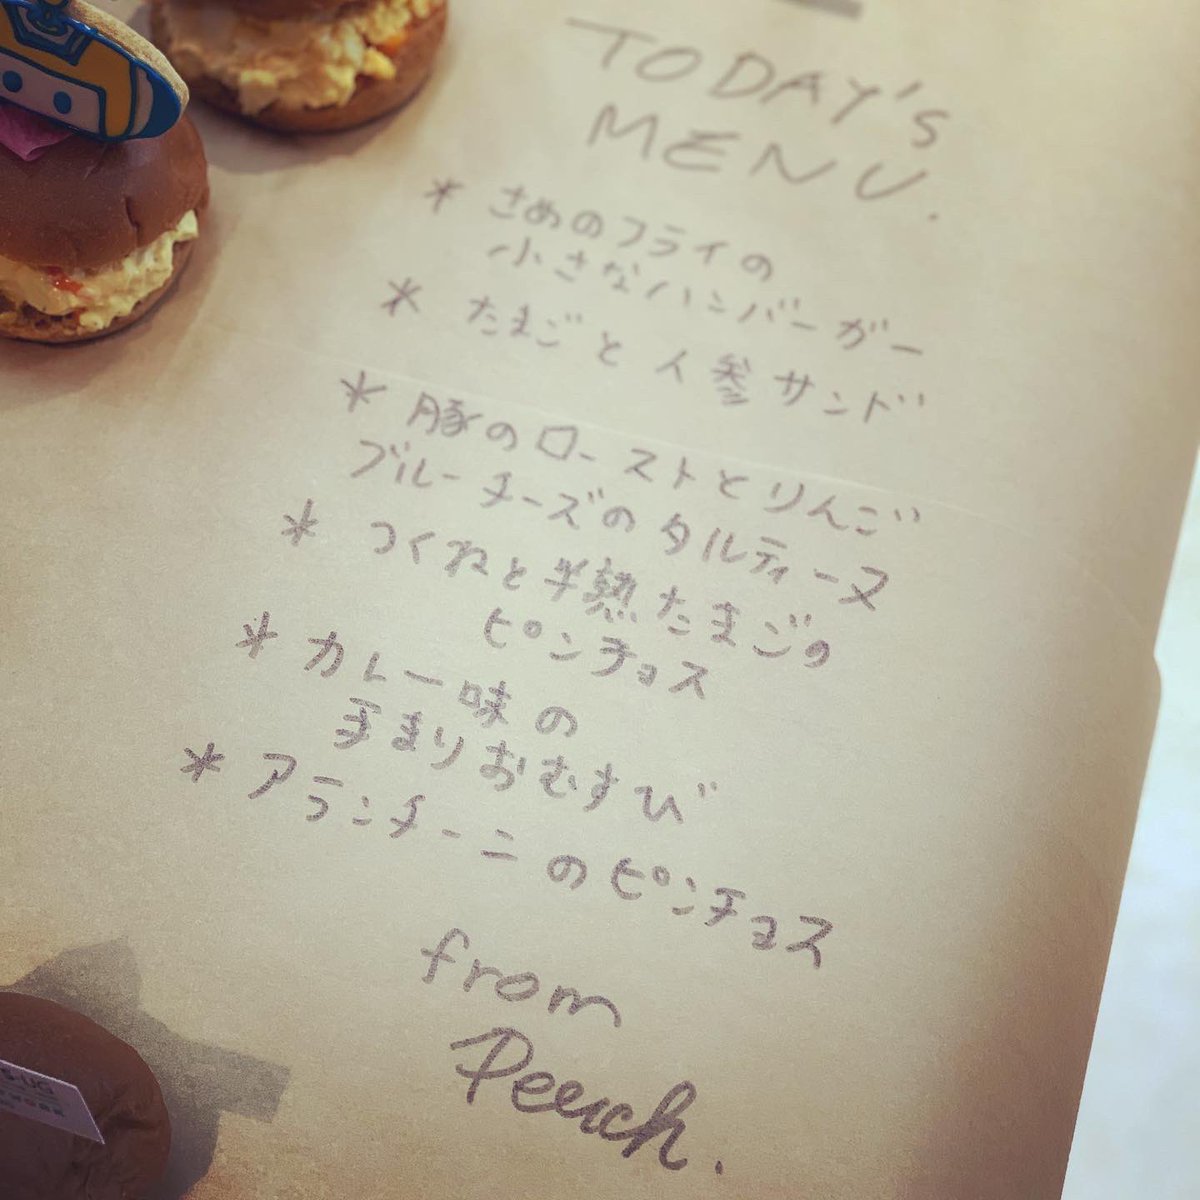 TODAY'S
MENU.
* さめのフライの
小さなハンバーガー
* たまごと人参サンド
* 豚のローストとりんご
ブルーチーズのタルティーヌ
* つくねと半熟たまごの
ピンチョス
* カレー味の
手まりおむすび
* アランチーニのピンチョス
from
Peeech.
S-UG